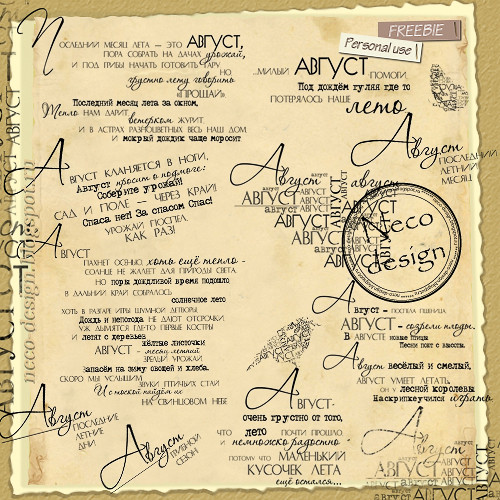 FREEBIE
Personal use
Последний месяц лета — это АВГУСТ,
пора собрать на дачах урожай,
и под грибы начать готовить тару
но
грустно лету говорить
прощай»
Последний месяц лета за окном,
Тепло нам дарит,
ветерком журит
и в астрах разноцветных весь наш дом
и мокрый дождик чаще моросит
...милый АВГУСТ помоги,
Под дождём гуляя где то
потерялось наше
лето
Август
последний
летний
месяц
Август кланяется в ноги,
Август просит о подмоге:
Соберите урожай!
Сад и поле — через край!
Спаса нет! За спасом Спас!
Урожай поспел
как раз!
август
Август
АВГУСТ
август
АВГУСТ
август
АВГУСТ
АВГУСТ
Neco
design
Август
пахнет осенью, хоть ещё тепло -
солнце не жалеет для природы света,
но поры дождливой время подошло
в дальний край собралось
солнечное лето
хоть в разгаре игры шумной детворы
Дождь и непогода не дают отсрочки
уж дымятся где-то первые костры
и летят с деревьев
жёлтые листочки
АВГУСТ - месяц летний
зрелый урожай
запасём на зиму овощей и хлеба.
скоро мы услышим
звуки птичьих стай
И с тоской найдём их
на свинцовом небе
Август –
поспела пшеница
АВГУСТ - созрели плоды.
В августе новые птицы
Песни поют с высоты.
Август весёлый и смелый,
Август умеет летать.
он и лесной королевы
На скрипке учился играть
Август
последние
летние
дни
Август
грибной
сезон
Август-
очень грустно от того,
что лето почти прошло
и немножко радостно -
потому что маленький
кусочек лета
ещё остался...
август
Август
АВГУСТ
АВГУСТ
АВГУСТ